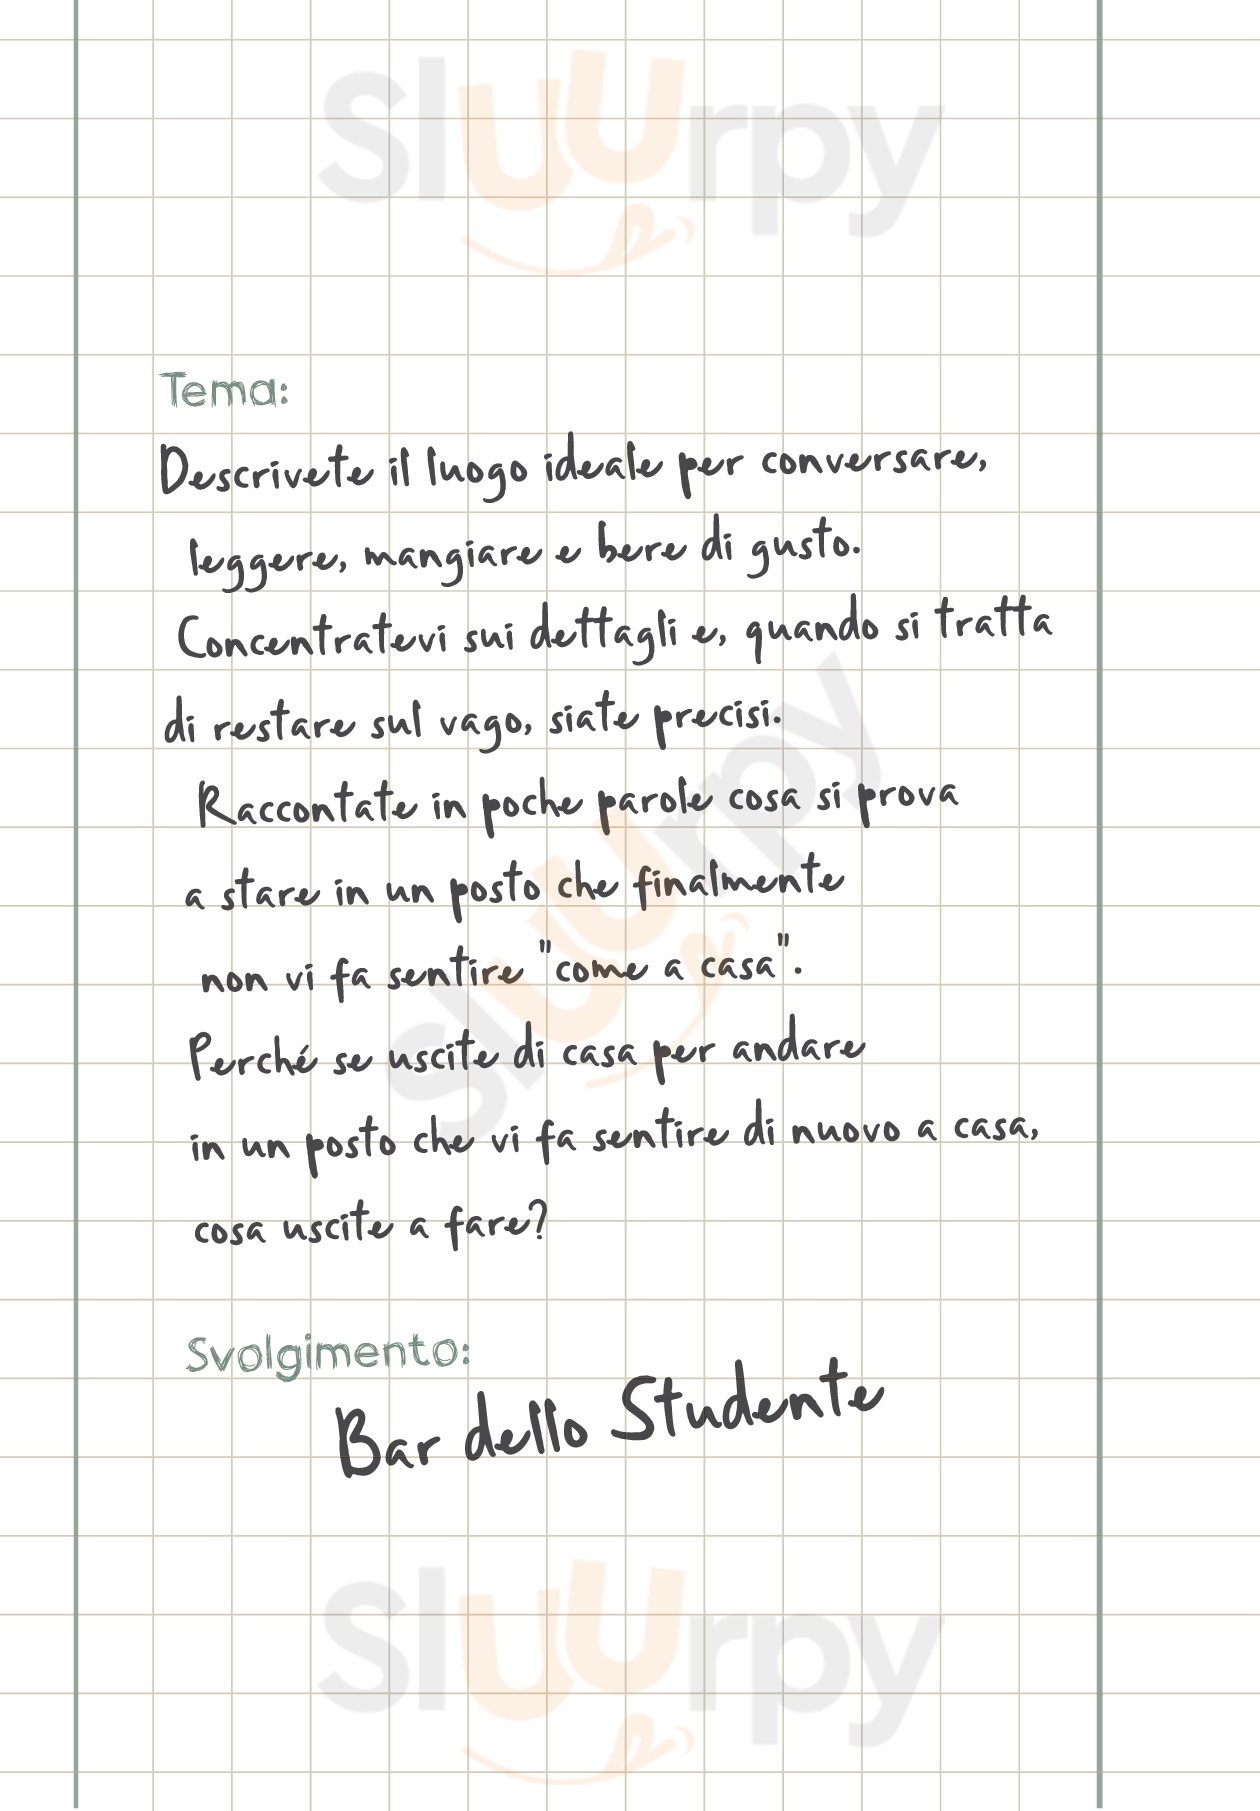 Sluurpy
Tema:
Descrivete il luogo ideale per conversare,
leggere, mangiare e bere di gusto.
Concentratevi sui dettagli e, quando si tratta
di restare sul vago, siate precisi.
Raccontate in poche parole cosa si prova
a stare in un posto che finalmente
non vi fa sentire "come a casa".
Sluurpy
Perché se uscite di casa per andare
in un posto che vi fa sentire di nuovo a casa,
cosa uscite a fare?
Svolgimento:
Bar dello Studente
Sluurpy